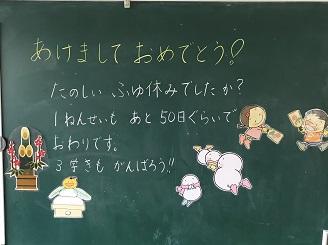 あけまして おめでとう!
たのしい ふゆ休みでしたか?
1ねんせいも あと 50日ぐらいで
おわりです。
3学きも がんばろう!!